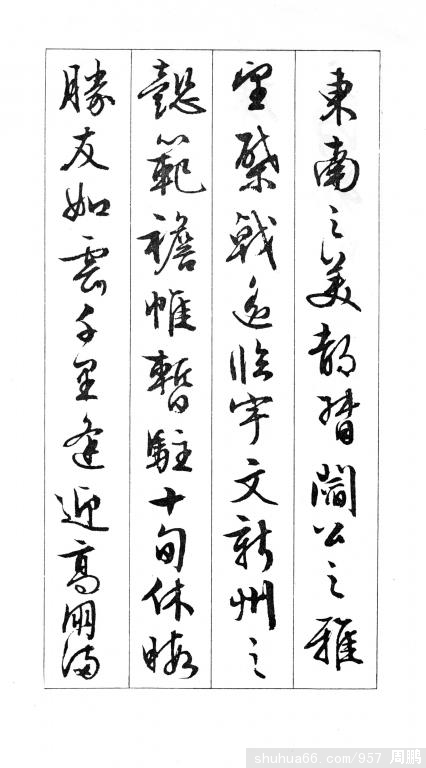 東南之美都督閻公之雅
望棨戟遙臨宇文新州之
懿範襜帷暫駐十旬休暇
勝友如雲千里逢迎高朋滿
shuhua66.com/957 周鹏